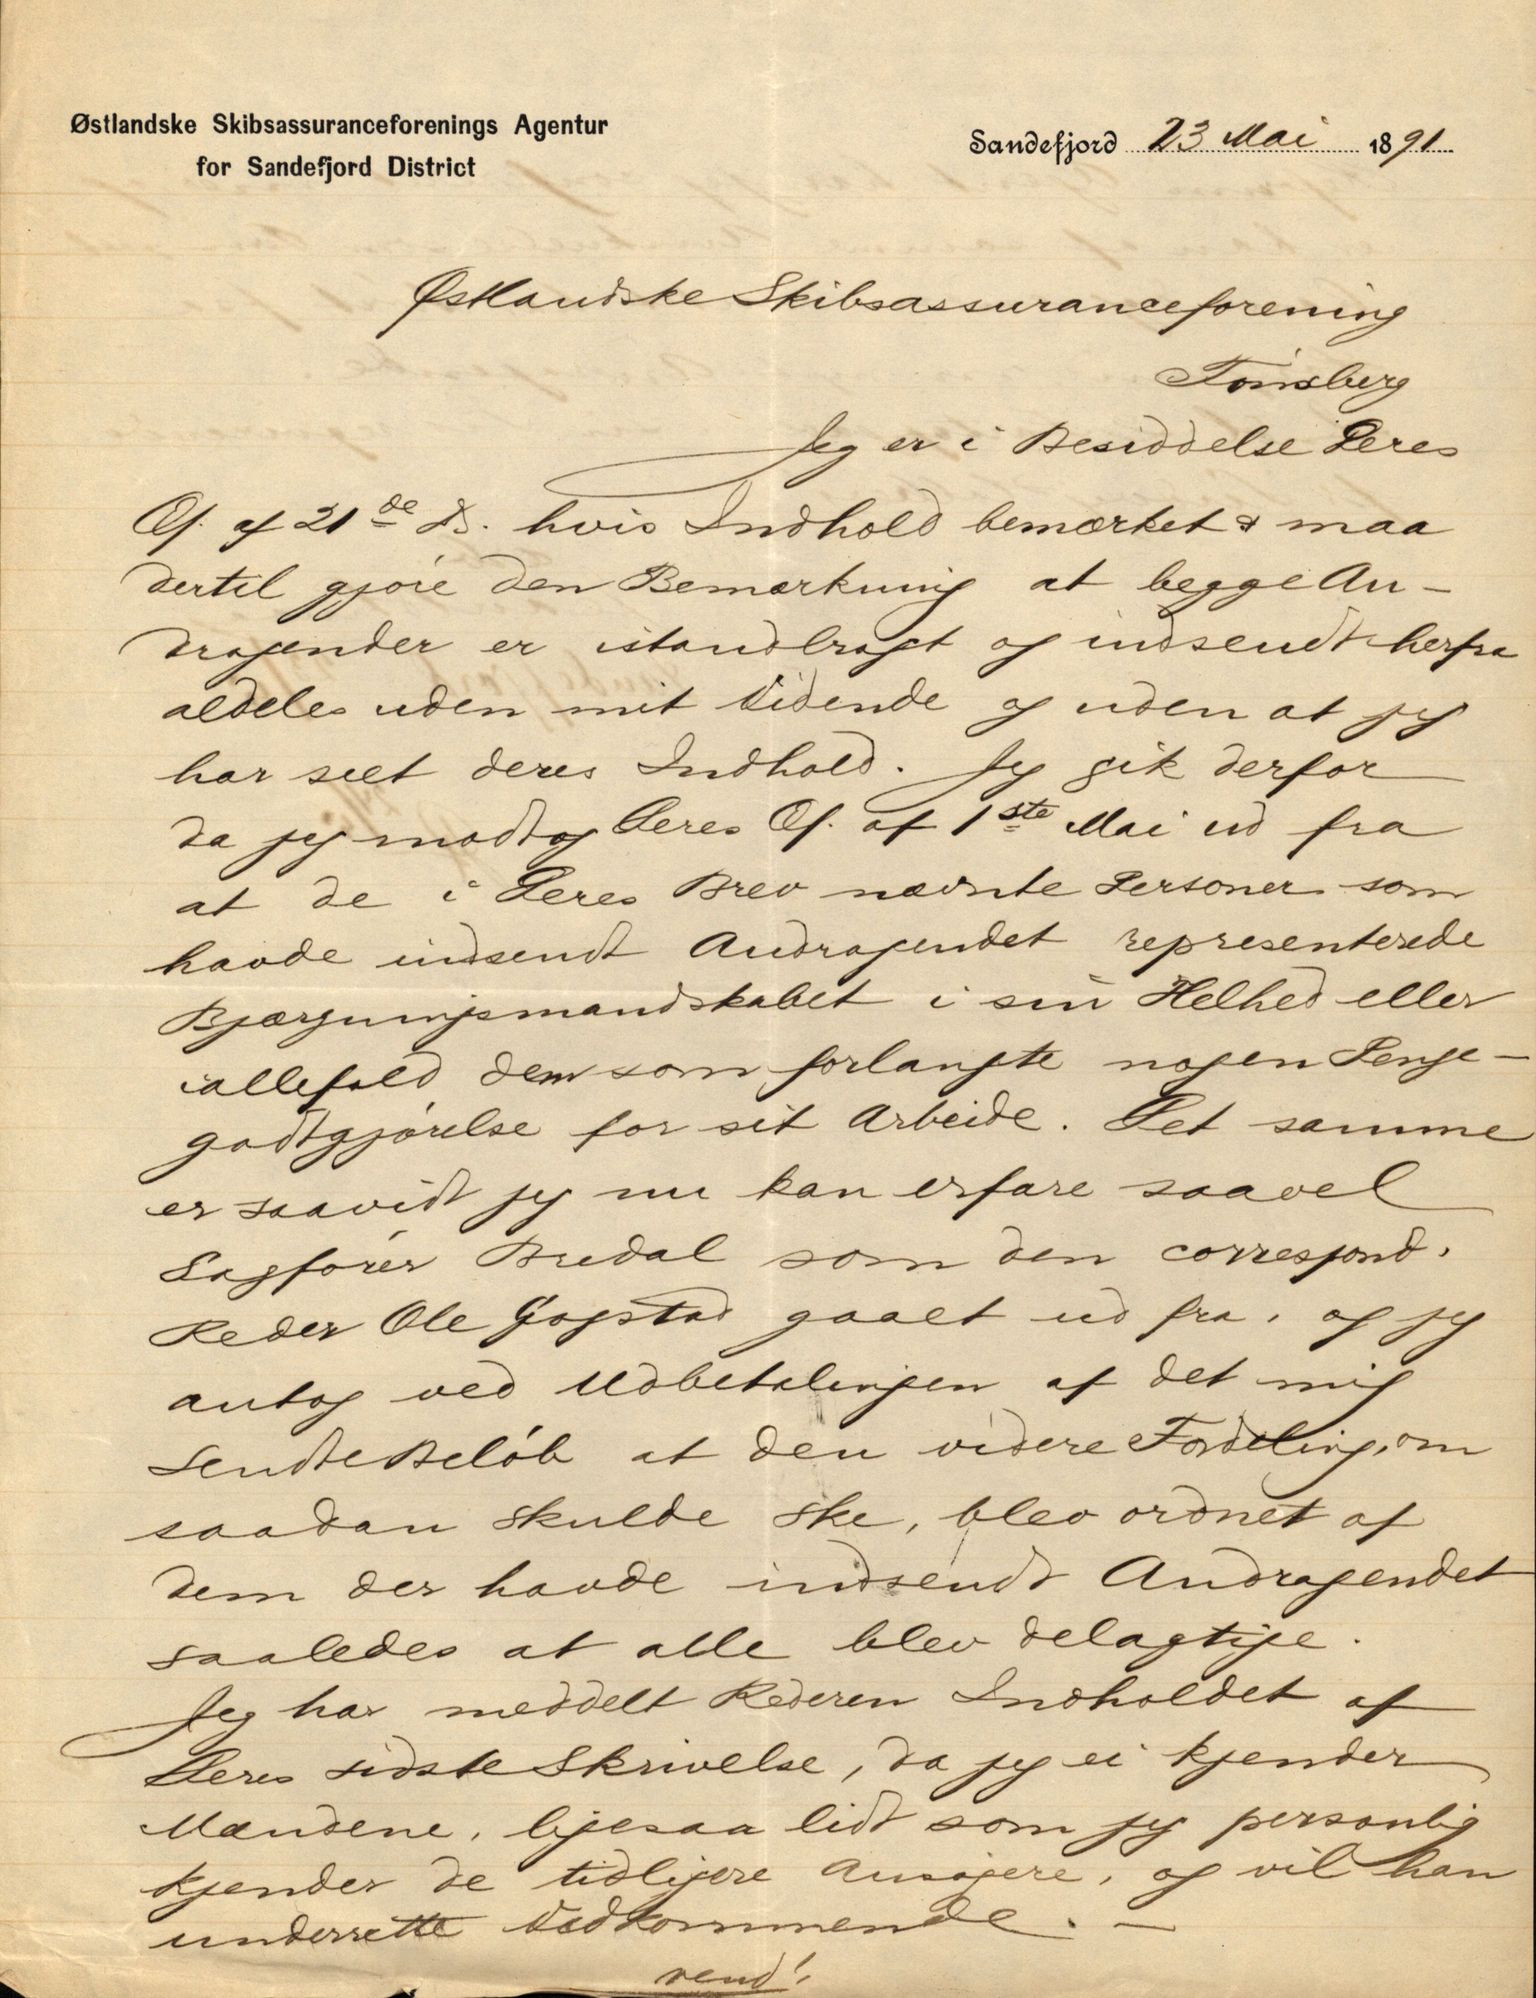 Østlandske Skibsassuranceforenings Agentur
for Sandefjord District
Sandefjord 23 Mai 1891
Østlandske Skibsassuranceforening
Tønsberg
Jeg er i Besiddelse Deres
af 21de ds. hvis Indhold bemærket & maa
dertil gjøre den Bemærkning at begge An-
dragender er istandbragt og indsendt herfra
aldeles uden mit Vidende og uden at jeg
har seet deres Indhold. Jeg gik derfor
da jeg modtog Deres af 1ste Mai ud fra
at de i Deres Brev nævnte Personer som
havde indsendt Andragendet representerede
Bjærgningsmandskabet i sin Helhed eller
iallefald dem som forlangte nogen Penge-
godtgjørelse for sit Arbeide. Det samme
er saavidt jeg nu kan erfare saavel
Sagfører Bredal som den correspond.
Reder Ole Gogstad gaaet ud fra, og jeg
antog ved Udbetalingen af det mig
sendte Beløb at den videre Fordeling, om
saadan skulde ske, blev ordnet af
dem der havde indsendt Andragendet
saaledes at alle blev delagtige.
Jeg har meddelt Rederen Indholdet af
Deres sidste Skrivelse, da jeg ei kjender
Mændene, ligesaa lidt som jeg personlig
kjender de tidligere Ansøgere, og vil han
underrette Vedkommende. —
vend!